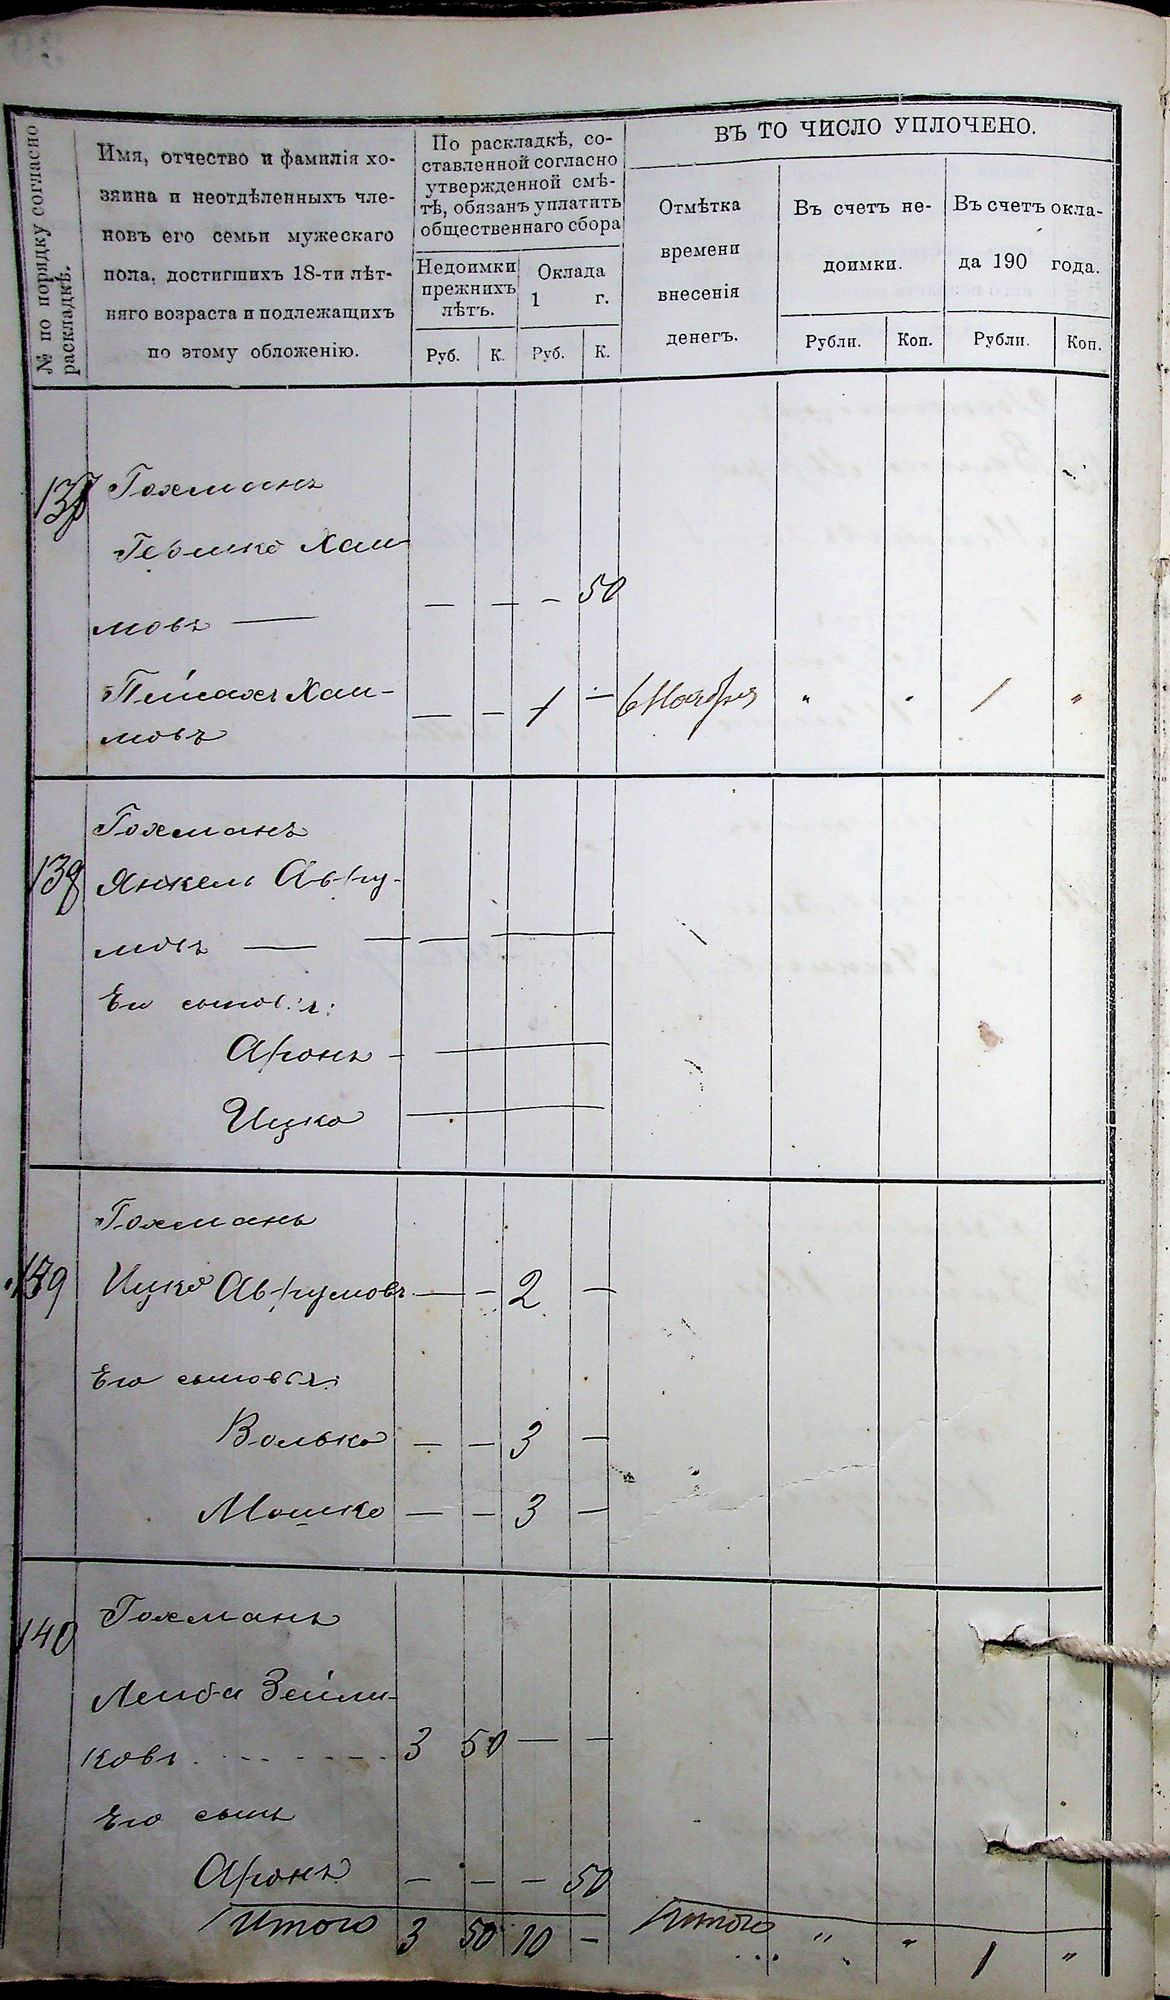 № по порядку согласно раскладкѣ.
Имя, отчество и фамилія хо-
зяина и неотдѣленныхъ чле-
новъ его семьи мужескаго
пола, достигшихъ 18-ти лѣт-
няго возраста и подлежащихъ
по этому обложенію.
По раскладкѣ, со-
ставленной согласно
утвержденной смѣ-
тѣ, обязанъ уплатить
общественнаго сбора
Недоимки
прежнихъ
лѣтъ.
Оклада
1 г.
Руб. К. Руб. К.
ВЪ ТО ЧИСЛО УПЛОЧЕНО.
Отмѣтка
времени
внесенія
денегъ.
Въ счетъ не-
доимки.
Въ счетъ окла-
да 190 года.
Рубли. Коп. Рубли. Коп.
137 Гохманъ
Гершко Хаи-
мовъ — — — — 50
Пейсахъ Хаи- — — 1 — 6 Ноября " " 1 "
мовъ
138 Гохманъ
Янкель Авру-
мовъ — — — —
Его сыновья:
Аронъ — —
Ицко —
139 Гохманъ
Ицко Аврумовъ — — 2 —
Его сыновья:
Волько — — 3 —
Мошко — — 3 —
140 Гохманъ
Лейба Зейли-
ковъ 3 50 — —
Его сынъ
Аронъ — — — 50
Итого 3 50 10 — Итого " " 1 "